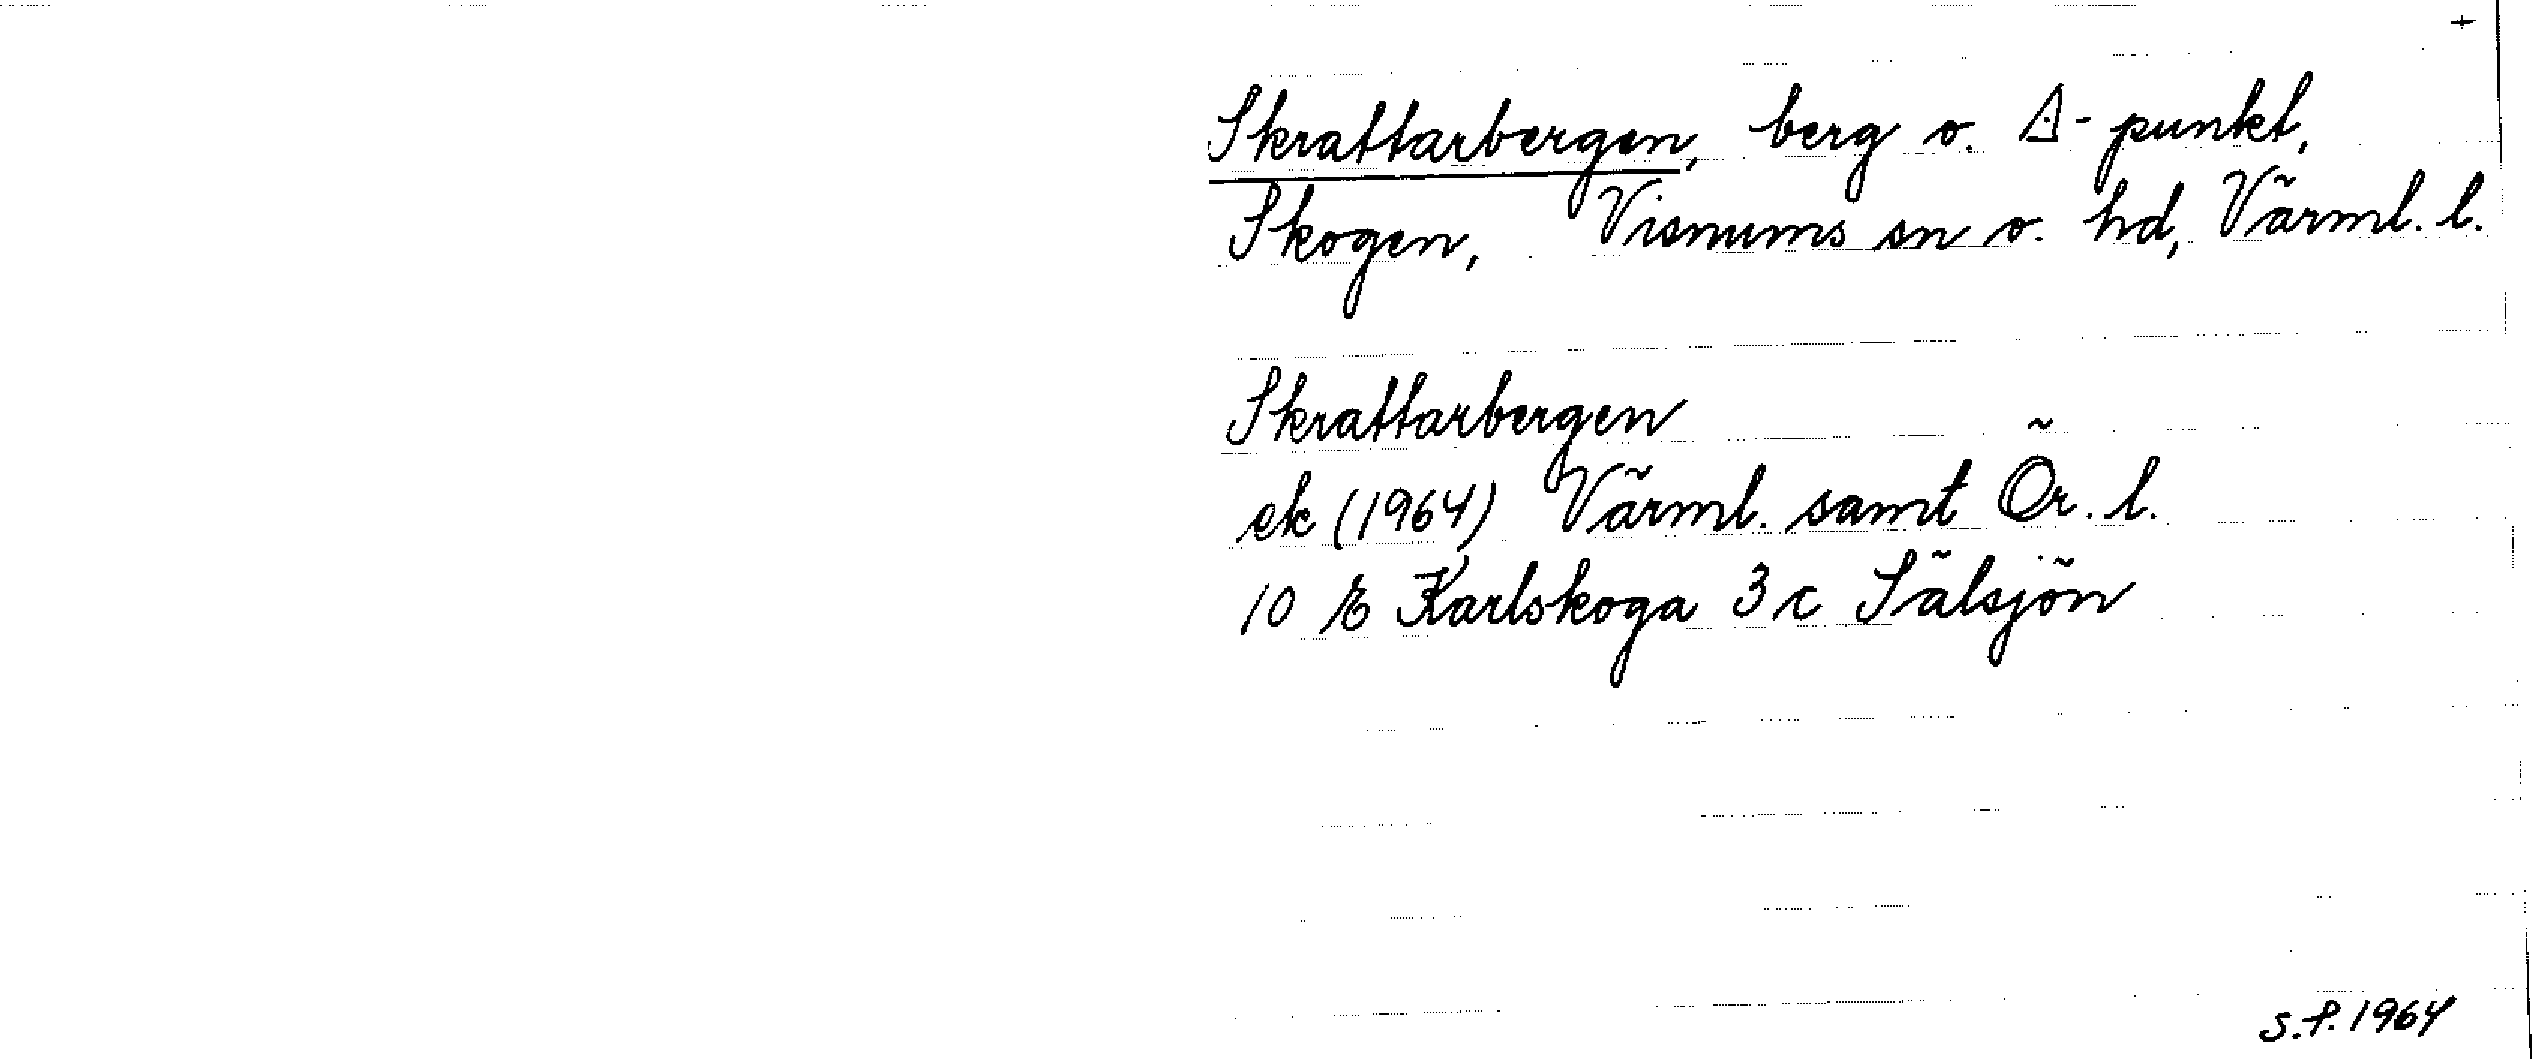 +
Skrattarbergen, berg o. △-punkt,
Skogen, Visnums sn o. hd, Värml. l.
Skrattarbergen
ek (1964) Värml. samt Ör. l.
10 E Karlskoga 3 c Sälsjön
S.P. 1964